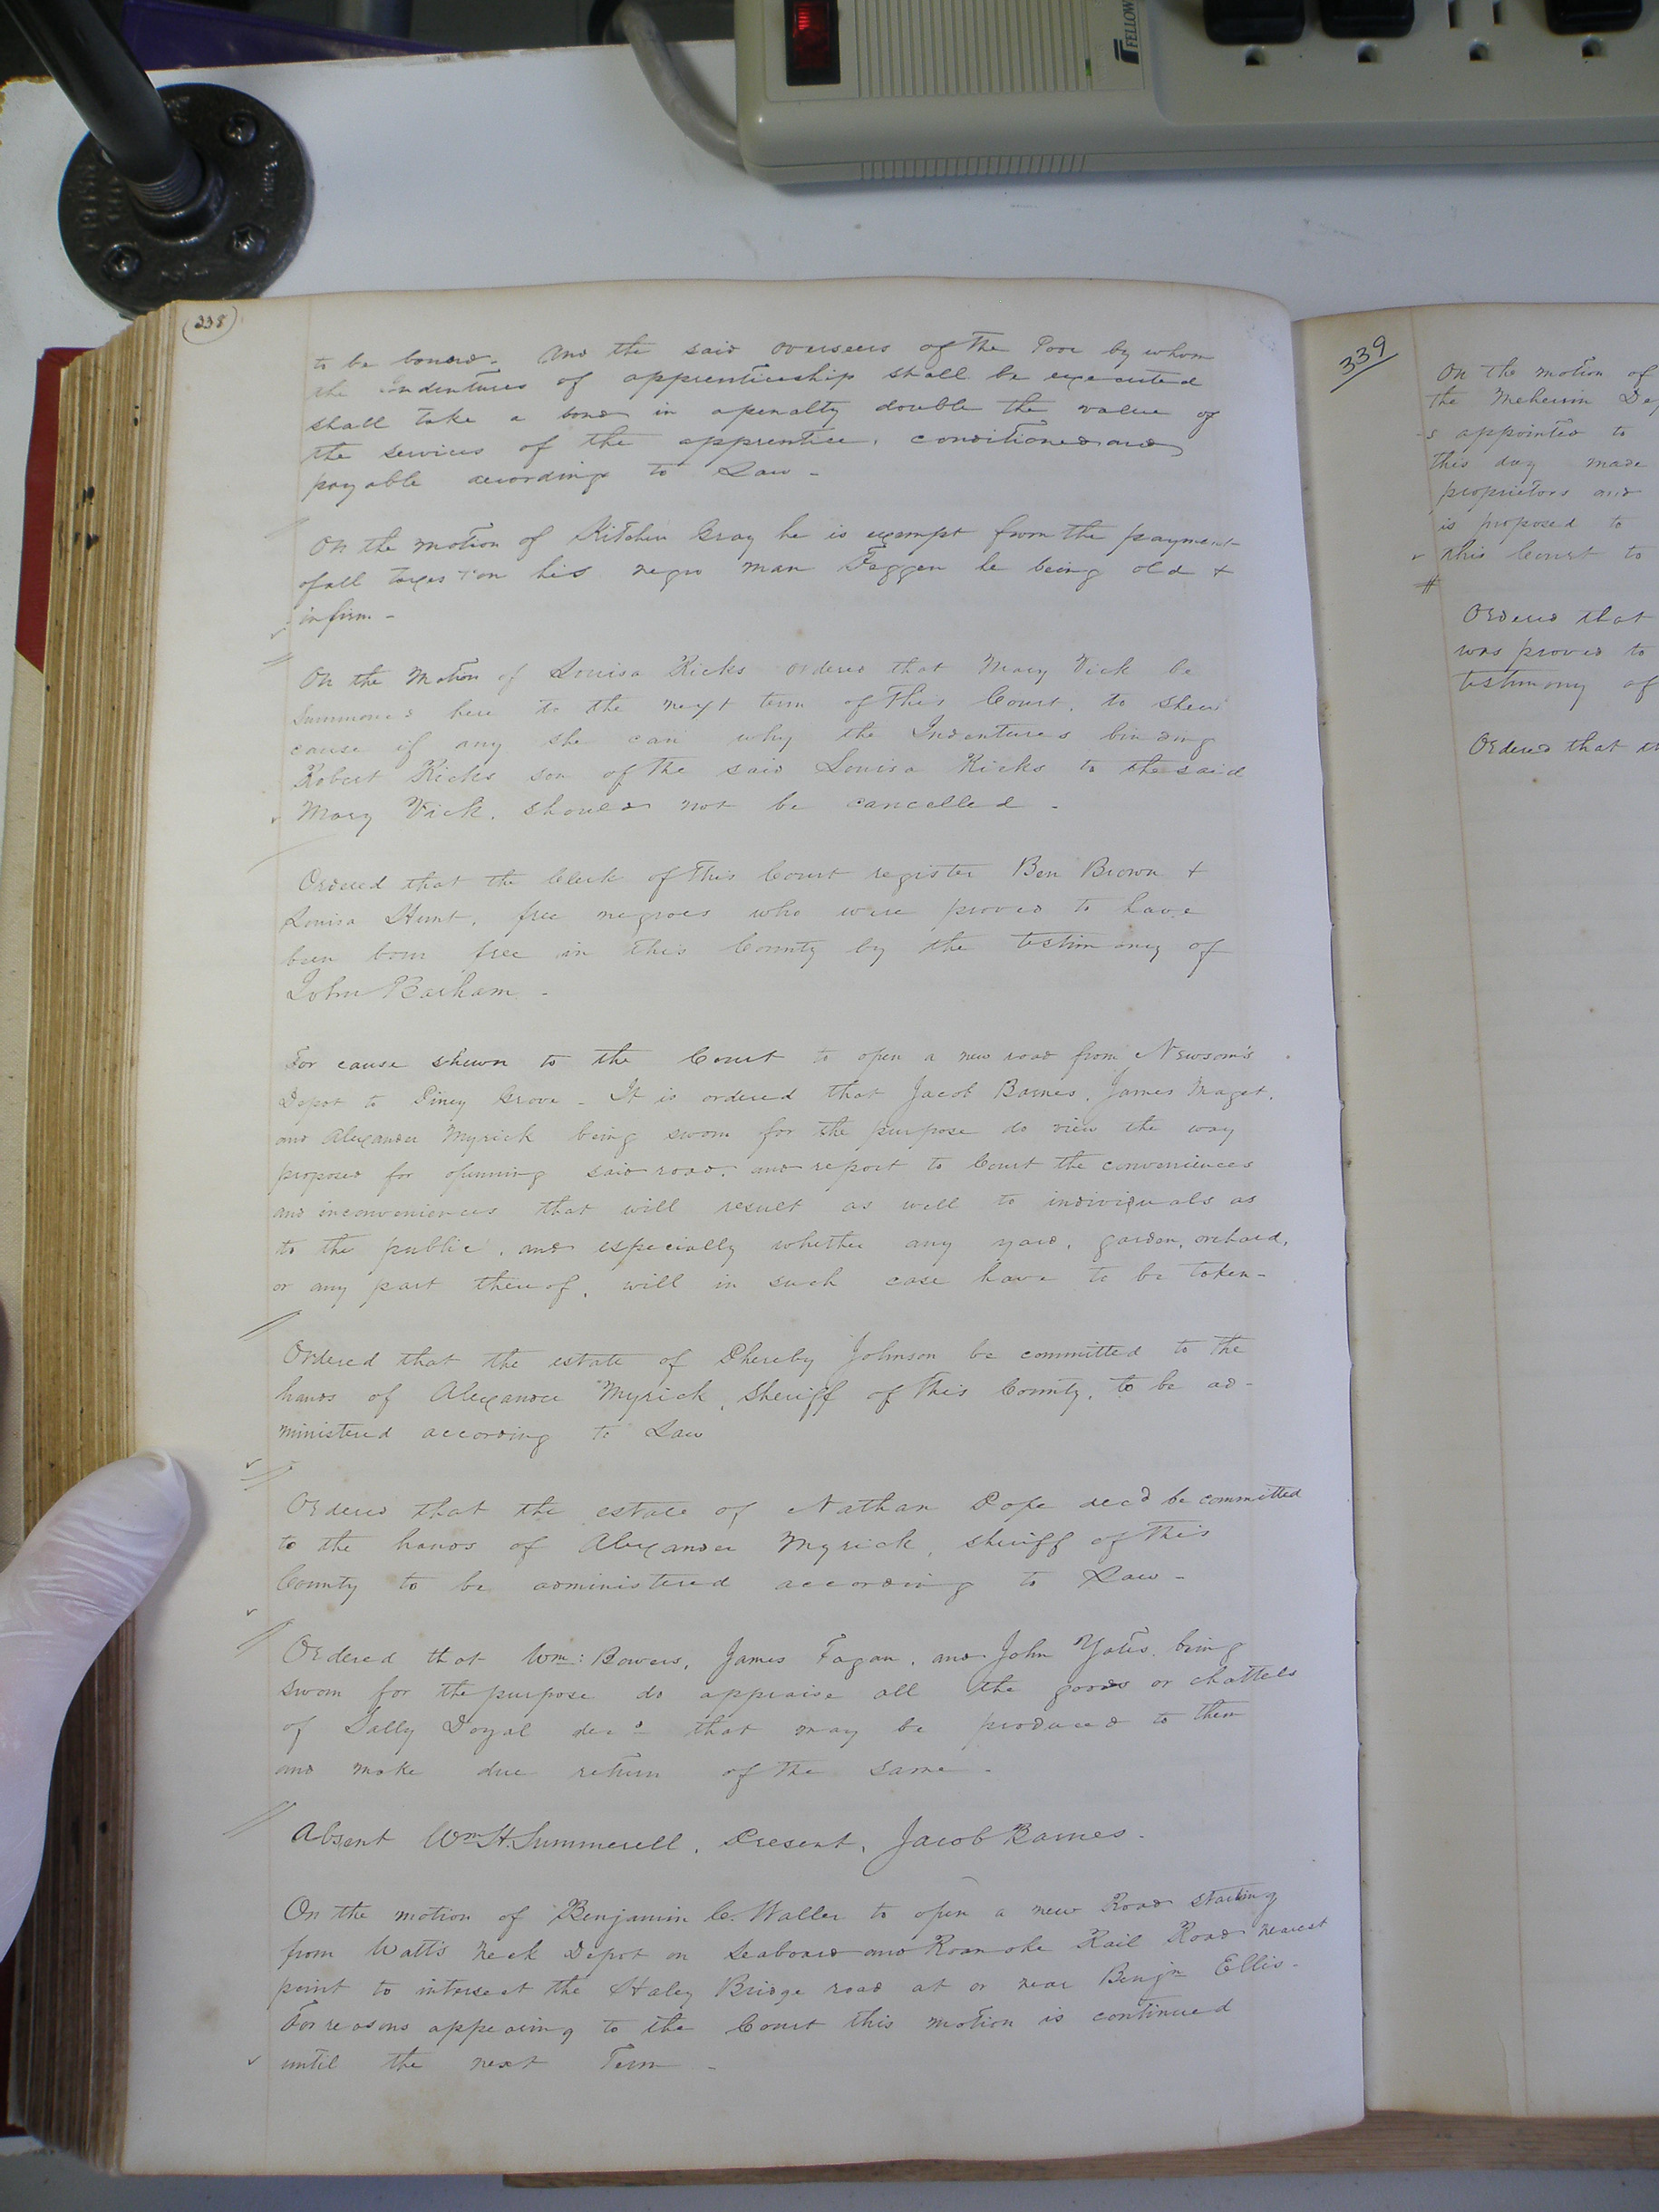 FELLOW
(338)
to be bound. And the said overseers of the Poor by whom
the Indentures of apprenticeship shall be executed
shall take a bond in a penalty double the value of
the services of the apprentice, conditioned and
payable according to Law -
On the motion of Kitchen Gray he is exempt from the payment
of all taxes on his negro man he being old +
infirm -
On the Motion of Louisa Ricks ordered that Mary Vick be
Summoned here to the next term of this Court, to shew
cause if any she can why the Indentures binding
Robert Ricks son of the said Louisa Ricks to the said
Mary Vick, should not be cancelled -
Ordered that the Clerk of this Court register Ben Brown +
Louisa Hunt, free negroes who were proved to have
been born free in this County by the testimony of
John Barham -
For cause shewn to the Court to open a new road from Newsom's
Depot to Piney Grove - It is ordered that Jacob Barnes, James Maget,
and Alexander Myrick being sworn for the purpose do view the way
proposed for openning said road, and report to Court the conveniences
and inconveniences that will result as well to individuals as
to the public, and especially whether any yard, garden, orchard,
or any part thereof, will in such case have to be taken -
Ordered that the estate of Phereby Johnson be committed to the
hands of Alexander Myrick, Sheriff of this County, to be ad-
ministered according to Law
Ordered that the estate of Nathan Pope decd be committed
to the hands of Alexander Myrick, sheriff of this
County to be administered according to Law -
Ordered that Wm: Bowers, James Fagan, and John Yates being
sworn for the purpose do appraise all the goods or chattels
of Sally Doyal decd that may be produced to them
and make due return of the same -
Absent Wm H. Summerell, Present, Jacob Barnes -
On the motion of Benjamin C. Waller to open a new Road starting
from Watts Neck Depot on Seaboard and Roanoke Rail Road nearest
point to intersect the Haley Bridge road at or near Benjn Ellis -
For reasons appearing to the Court this motion is continued
until the next Term -
339
On the motion of
the Meherrin
-s appointed to
this day made
proprietors and
is proposed to
this Court to
Ordered that
was proved to
testimony of
Ordered that